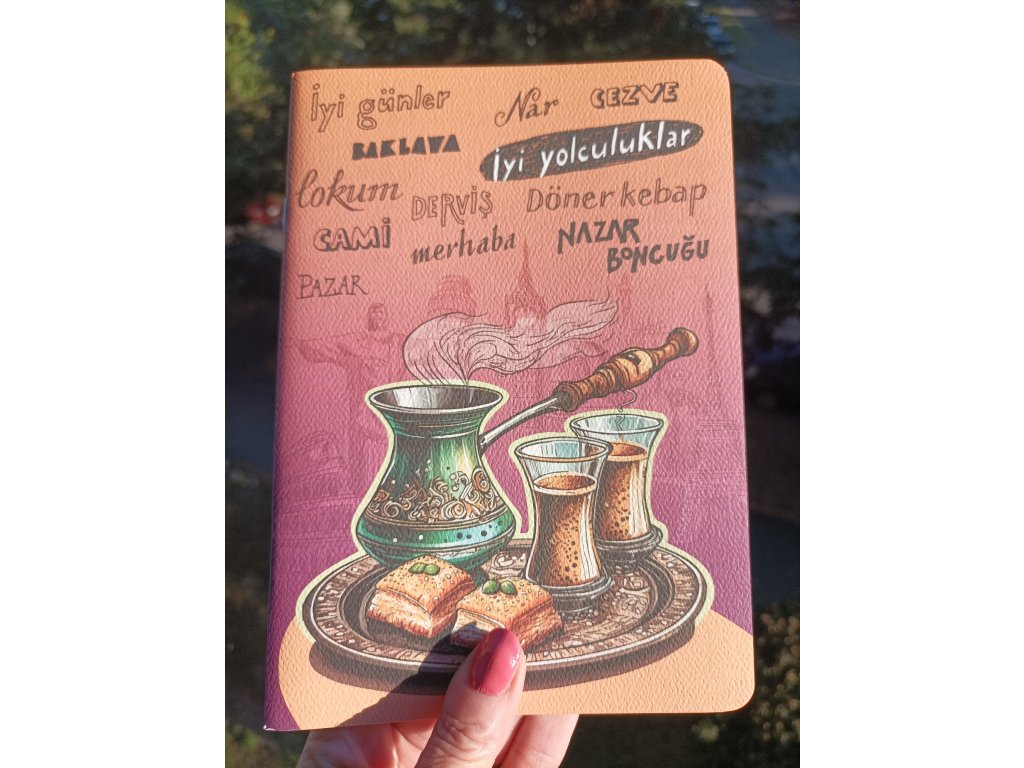 İyi günler
Nar
CEZVE
BAKLAVA
İyi yolculuklar
lokum
DERVİŞ
Döner kebap
CAMİ
merhaba
NAZAR
BONCUĞU
PAZAR